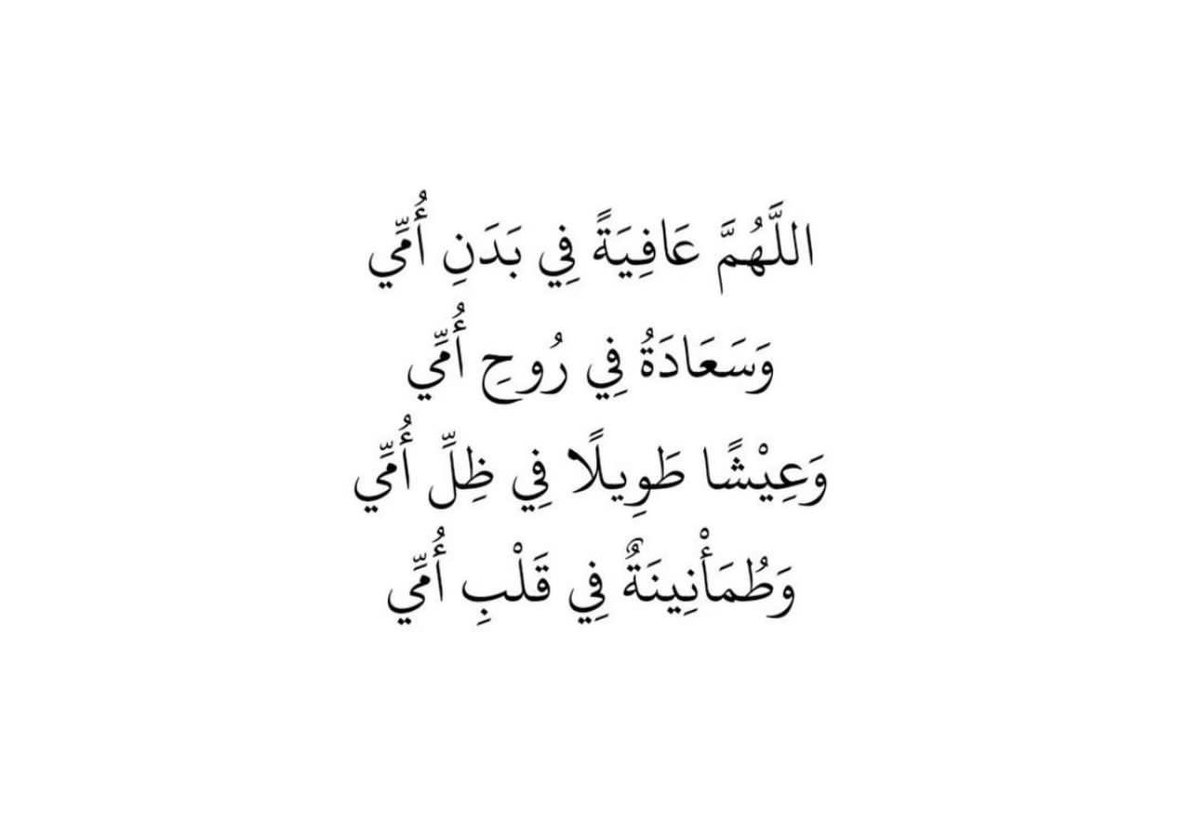 اللَّهُمَّ عَافِيَةً فِي بَدَنِ أُمِّي
وَسَعَادَةُ فِي رُوحِ أُمِّي
وَعِيْشًا طَوِيلًا فِي ظِلِّ أُمِّي
وَطُمَأْنِينَةٌ فِي قَلْبِ أُمِّي